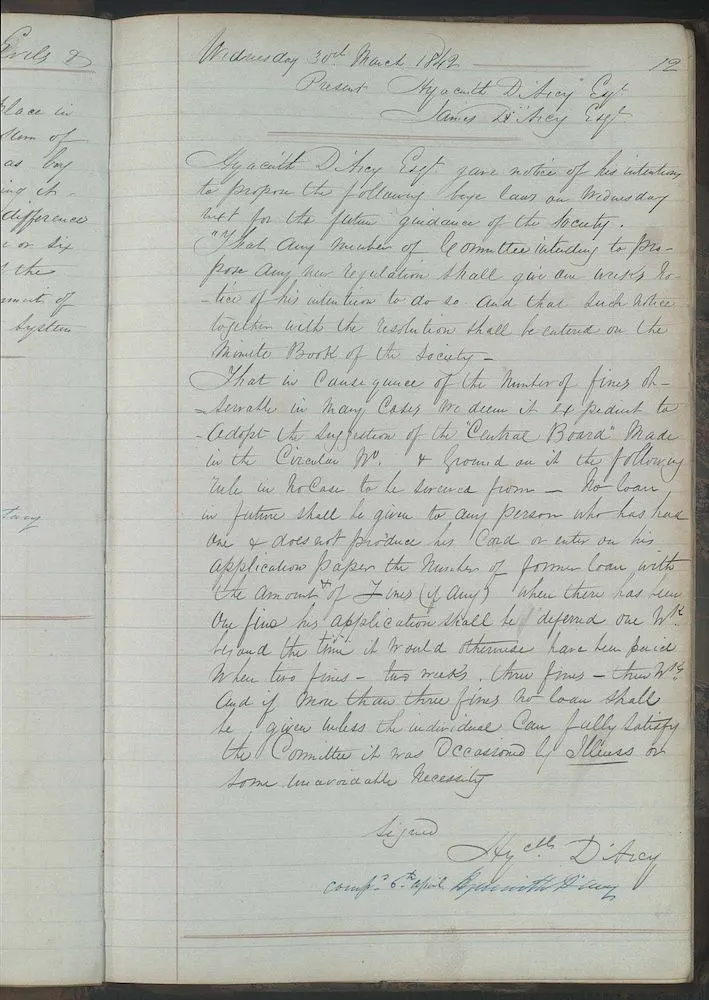 Evils &
place in
sum of
as boy
ing it -
difference
or six
the
ment of
System
Wednesday 30th March 1842 12
Present Hyacinth D'Arcy Esqr
James D'Arcy Esqr
Hyacinth D'Arcy Esqr gave notice of his intention
to propose the following bye laws on Wednesday
next for the future guidance of the Society.
"That any member of Committee intending to pro-
pose any new regulation shall give one week's No-
-tice of his intention to do so. And that such Notice
together with the resolution shall be entered on the
Minute Book of the Society -
That in Consequence of the Number of fines ob-
-servable in Many Cases We deem it expedient to
-Adopt the Suggestion of the "Central Board" Made
in the Circular No. & Ground on it the following
rule in No Case to be swerved from - No loan
in future shall be given to any person who has had
One & does not produce his Card or enter on his
application paper the Number of former loan with
the amount of Fines (if any) When there has been
One fine his application shall be deferred one Wk
beyond the time it would otherwise have been paid
When two fines - two weeks, three fines - three Wks
And if More than three fines No loan shall
be given unless the individual Can fully Satisfy
the Committee it was Occasioned by Illness or
Some Unavoidable Necessity
Signed
Hyath D'Arcy
6th April Hyacinth D'Arcy